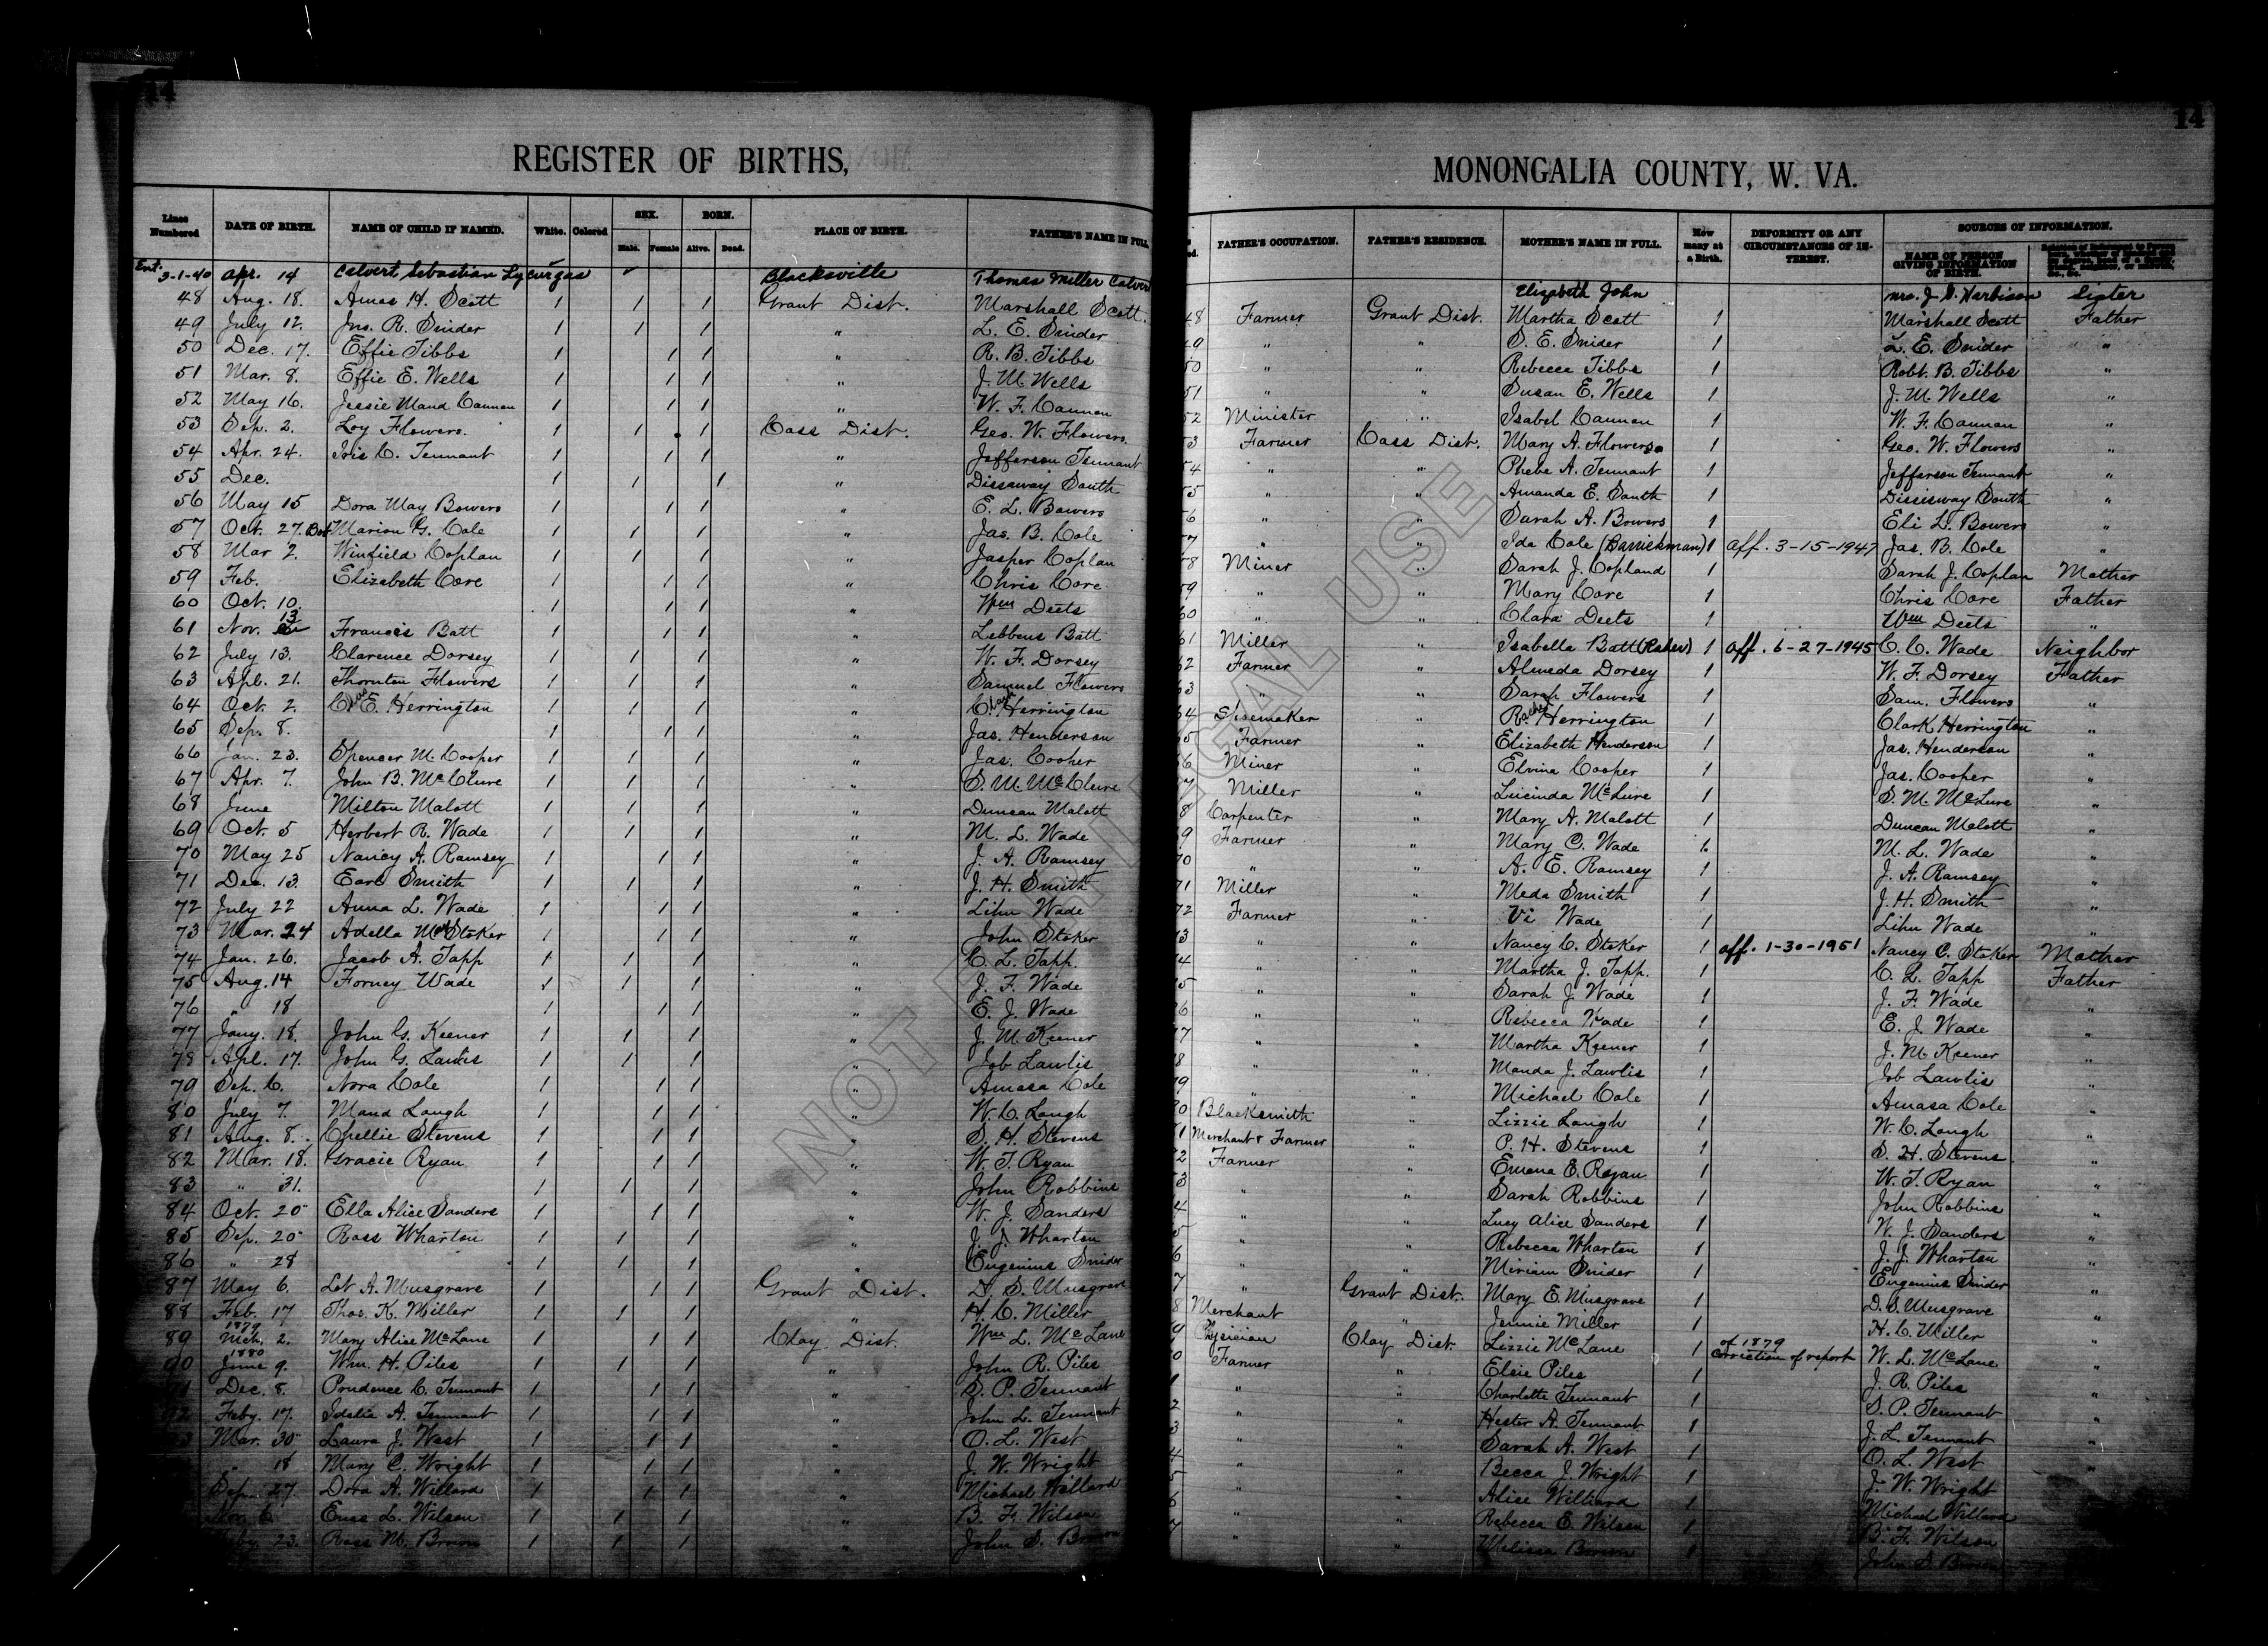 14
14
REGISTER OF BIRTHS,
MONONGALIA COUNTY, W. VA.
Lines Numbered DATE OF BIRTH. NAME OF CHILD IF NAMED. White. Colored SEX. Male. Female BORN. Alive. Dead. PLACE OF BIRTH. FATHER'S NAME IN FULL FATHER'S OCCUPATION. FATHER'S RESIDENCE. MOTHER'S NAME IN FULL. How many at a Birth. DEFORMITY OR ANY CIRCUMSTANCES OF INTEREST. SOURCES OF INFORMATION. NAME OF PERSON GIVING INFORMATION OF BIRTH.
Ent. 3-1-40 Apr. 14 Calvert, Sebastian Lycurgas Blacksville Thomas Miller Calvert Elizabeth John Mrs. J. S. Harbison Sister
48 Aug. 18. Amos H. Scott 1 1 1 Grant Dist. Marshall Scott. Farmer Grant Dist. Martha Scott 1 Marshall Scott Father
49 July 12. Jno. R. Snider 1 1 1 " L. E. Snider " " S. E. Snider 1 L. E. Snider "
50 Dec. 17. Effie Tibbs 1 1 1 " R. B. Tibbs " " Rebecca Tibbs 1 Robt. B. Tibbs "
51 Mar. 8. Effie E. Wells 1 1 1 " J. M. Wells " " Susan E. Wells 1 J. M. Wells "
52 May 16. Jessie Maud Cannon 1 1 1 " W. F. Cannon Minister " Isabel Cannon 1 W. F. Cannon "
53 Sep. 2. Loy Flowers. 1 1 1 Cass Dist. Geo. W. Flowers Farmer Cass Dist. Mary A. Flowers 1 Geo. W. Flowers "
54 Apr. 24. Iris C. Tennant 1 1 1 " Jefferson Tennant " " Phebe A. Tennant 1 Jefferson Tennant "
55 Dec. 1 1 1 " Dissaway South " " Amanda E. South 1 Dissisway South "
56 May 15 Dora May Bowers 1 1 1 " E. L. Bowers " " Sarah A. Bowers 1 Eli L. Bowers "
57 Oct. 27 Marion G. Cole 1 1 1 " Jas. B. Cole " " Ida Cole (Barrickman) 1 aff. 3-15-1947 Jas. B. Cole "
58 Mar 2. Winfield Coplan 1 1 1 " Jasper Coplan Miner " Sarah J. Copland 1 Sarah J. Coplan Mother
59 Feb. Elizabeth Core 1 1 1 " Chris Core " " Mary Core 1 Chris Core Father
60 Oct. 10. 1 1 1 " Wm Deets " " Clara Deets 1 Wm Deets "
61 Nov. 13 Francis Batt 1 1 1 " Lebbens Batt Miller " Isabella Batt 1 aff. 6-27-1945 C. C. Wade Neighbor
62 July 13. Clarence Dorsey 1 1 1 " W. F. Dorsey Farmer " Almeda Dorsey 1 W. F. Dorsey Father
63 Apl. 21. Thornton Flowers 1 1 1 " Samuel Flowers " " Sarah Flowers 1 Sam. Flowers "
64 Oct. 2. E. Herrington 1 1 1 " Herrington Shoemaker " Rachel Herrington 1 Clark Herrington "
65 Sep. 8. 1 1 1 " Jas. Henderson Farmer " Elizabeth Henderson 1 Jas. Henderson "
66 Jan. 23. Spencer M. Cooper 1 1 1 " Jas. Cooper Miner " Elvina Cooper 1 Jas. Cooper "
67 Apr. 7. John B. McClure 1 1 1 " S. M. McClure Miller " Lucinda McLure 1 S. M. McLure "
68 June Milton Malott 1 1 1 " Duncan Malott Carpenter " Mary A. Malott 1 Duncan Malott "
69 Oct. 5 Herbert R. Wade 1 1 1 " M. L. Wade Farmer " Mary C. Wade 1 M. L. Wade "
70 May 25 Nancy A. Ramsey 1 1 1 " J. A. Ramsey " " A. E. Ramsey 1 J. A. Ramsey "
71 Dec. 13. Earl Smith 1 1 1 " J. H. Smith Miller " Meda Smith 1 J. H. Smith "
72 July 22 Anna L. Wade 1 1 1 " Lihu Wade Farmer " Vi Wade 1 Lihu Wade "
73 Mar. 24 Adella Stoker 1 1 1 " John Stoker " " Nancy C. Stoker 1 aff. 1-30-1951 Nancy C. Stoker Mother
74 Jan. 26. Jacob A. Tapp 1 1 1 " C. L. Tapp. " " Martha J. Tapp. 1 C. L. Tapp Father
75 Aug. 14 Forney Wade 1 1 1 " J. F. Wade " " Sarah J. Wade 1 J. F. Wade "
76 " 18 1 1 1 " E. J. Wade " " Rebecca Wade 1 E. J. Wade "
77 Jany. 18. John G. Keener 1 1 1 " J. M. Keener " " Martha Keener 1 J. M. Keener "
78 Apl. 17. John G. Lawlis 1 1 1 " Job Lawlis " " Manda J. Lawlis 1 Job Lawlis "
79 Sep. 6. Nora Cole 1 1 1 " Amasa Cole " " Michael Cole 1 Amasa Cole "
80 July 7. Maud Lough 1 1 1 " W. C. Lough Blacksmith " Lizzie Lough 1 W. C. Lough "
81 Aug. 8. Chellie Stevens 1 1 1 " S. H. Stevens Merchant & Farmer " P. H. Stevens 1 S. H. Stevens "
82 Mar. 18. Gracie Ryan 1 1 1 " W. T. Ryan Farmer " Emma E. Ryan 1 W. T. Ryan "
83 " 31. 1 1 1 " John Robbins " " Sarah Robbins 1 John Robbins "
84 Oct. 20 Ella Alice Sanders 1 1 1 " W. J. Sanders " " Lucy Alice Sanders 1 W. J. Sanders "
85 Sep. 20 Ross Wharton 1 1 1 " J. J. Wharton " " Rebecca Wharton 1 J. J. Wharton "
86 " 28 1 1 1 " Eugenius Snider " " Miriam Snider 1 Eugenius Snider "
87 May 6. Let A. Musgrave 1 1 1 Grant Dist. D. S. Musgrave " Grant Dist. Mary E. Musgrave 1 D. S. Musgrave "
88 Feb. 17 Thos. K. Miller 1 1 1 " H. C. Miller Merchant " Jennie Miller 1 H. C. Miller "
89 1879 Mch. 2. Mary Alice McLane 1 1 1 Clay Dist. Wm L. McLane Physician Clay Dist. Lizzie McLane 1 of 1879 correction of report W. L. McLane "
90 1880 June 9. Wm. H. Piles 1 1 1 " John R. Piles Farmer " Elsie Piles 1 J. R. Piles "
91 Dec. 8. Prudence C. Tennant 1 1 1 " S. P. Tennant " " Charlotte Tennant 1 S. P. Tennant "
92 Feby. 17. Idelia A. Tennant 1 1 1 " John L. Tennant " " Hester A. Tennant 1 J. L. Tennant "
93 Mar. 30 Laura J. West 1 1 1 " O. L. West " " Sarah A. West 1 O. L. West "
" 18 Mary C. Wright 1 1 1 " J. W. Wright " " Becca J. Wright 1 J. W. Wright
Sep. 27 Dora A. Willard 1 1 1 " Michael Willard " " Alice Williard 1 Michael Willard
Nov. 6 L. Wilson 1 1 1 " B. F. Wilson " " Rebecca E. Wilson 1 B. F. Wilson
Feby. 23. Ross M. Brown 1 1 1 " John S. Brown " " Melissa Brown 1 John S. Brown